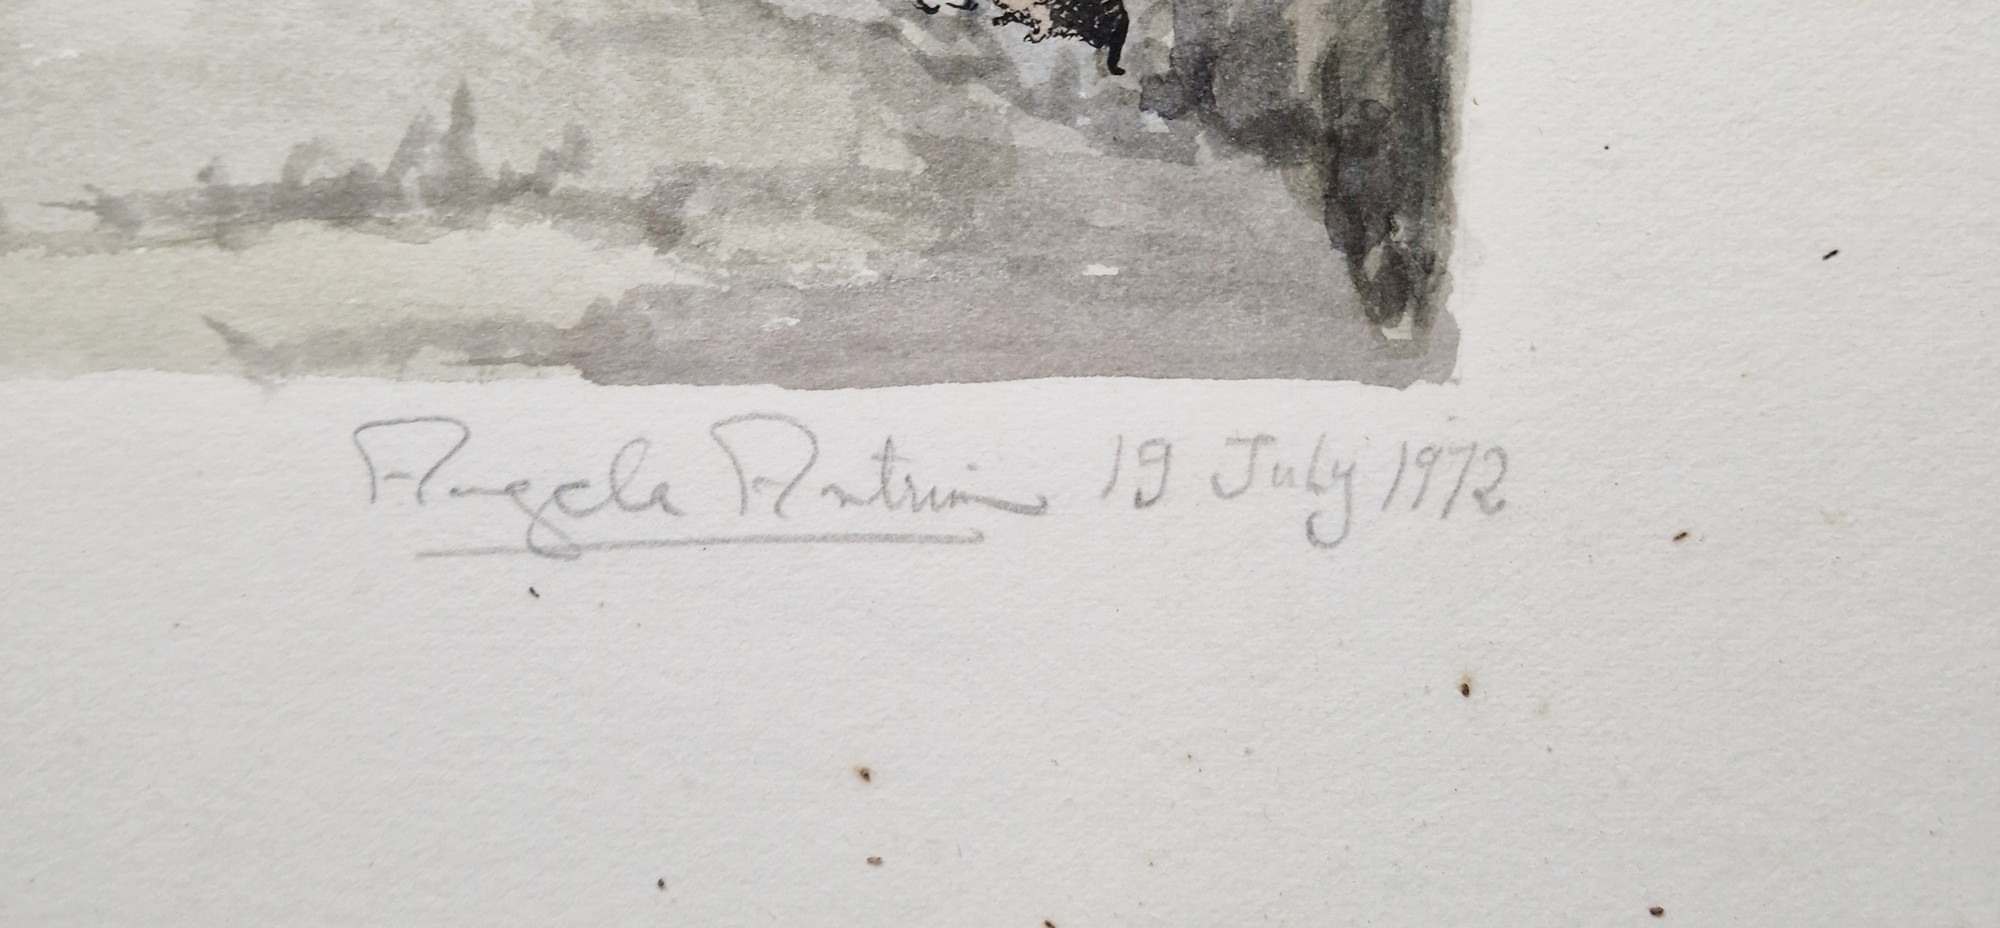 Angela Antrim 19 July 1972